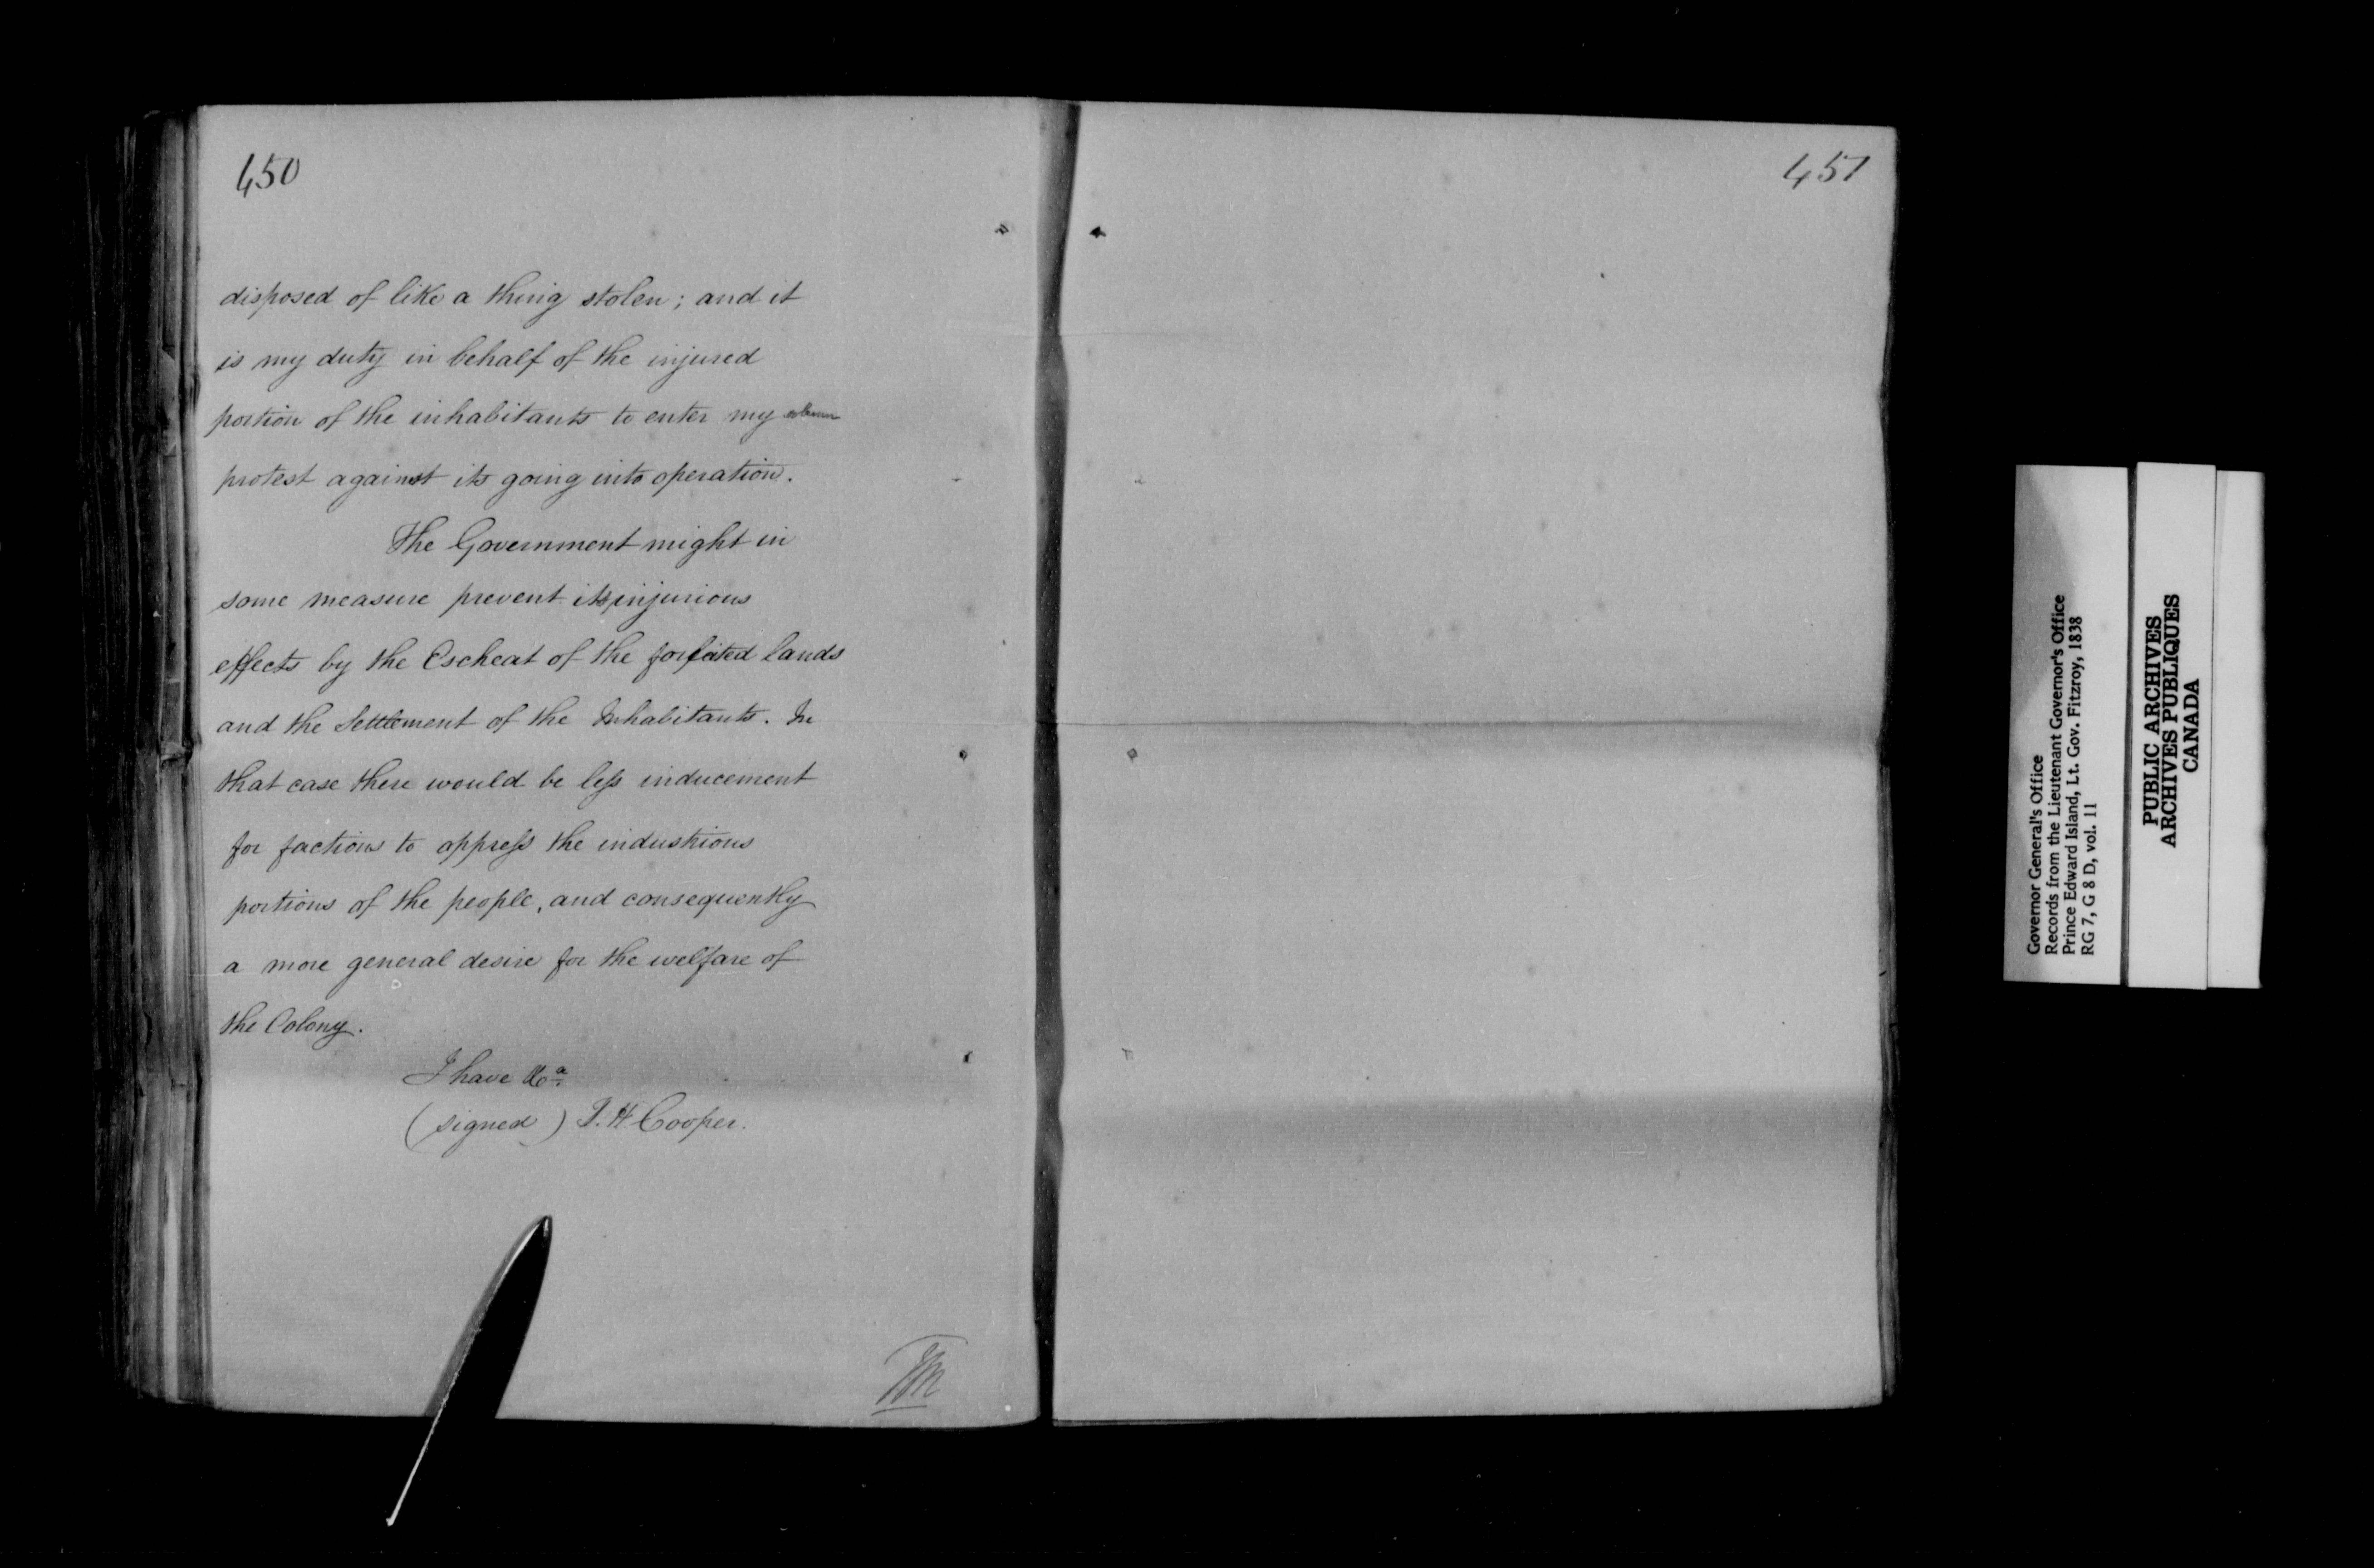 450
disposed of like a thing stolen; and it
is my duty in behalf of the injured
portion of the inhabitants to enter my solemn
protest against its going into operation.
The Government might in
some measure prevent its injurious
effects by the Escheat of the forfeited lands
and the Settlement of the Inhabitants. In
that case there would be less inducement
for factions to oppress the industrious
portions of the people, and consequently
a more general desire for the welfare of
the Colony.
I have &ca
(signed)
Cooper.
451
Governor General's Office
Records from the Lieutenant Governor's Office
Prince Edward Island, Lt. Gov. Fitzroy, 1838
RG 7, G 8 D, vol. 11
PUBLIC ARCHIVES
ARCHIVES PUBLIQUES
CANADA